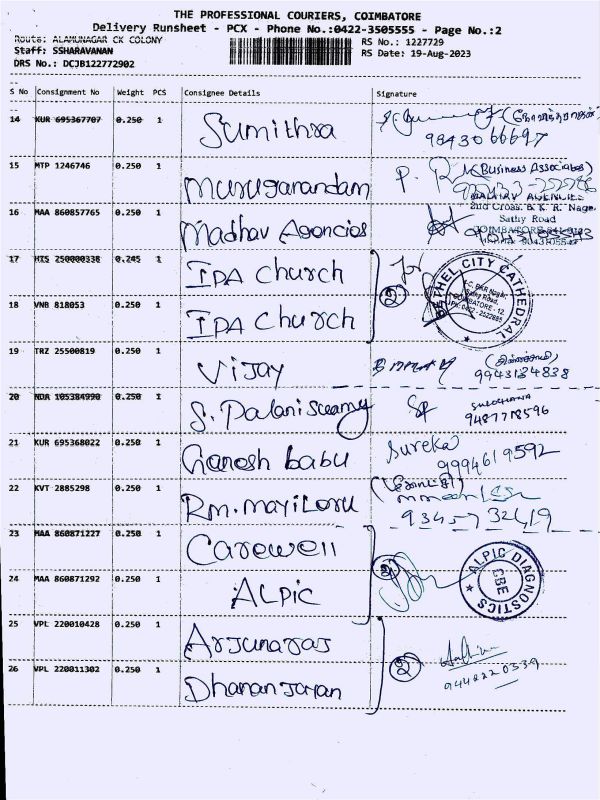 THE PROFESSIONAL COURIERS, COIMBATORE
Delivery Runsheet - PCX - Phone No.:0422-3505555 - Page No.:2
Route: ALAMUNAGAR CK COLONY
RS No.: 1227729
Staff: SSHARAVANAN
RS Date: 19-Aug-2023
DRS No.: DCJB122772902
S No Consignment No Weight PCS Consignee Details Signature
14 KUR 695367707 0.250 1 Sumithra
9843066697
15 MTP 1246746 0.250 1 Muruganandam P. (Business Associates)
MADHAV AGENCIES
16 MAA 860857765 0.250 1 Madhav Agencies 2nd Cross, B.K.R. Nagar
Sathy Road
17 HIS 250000338 0.245 1 IPA Church For
2 BETHEL CITY CATHEDRAL
Sathy Road,
COIMBATORE - 12.
18 VNB 818053 0.250 1 IPA Church
19 TRZ 25500819 0.250 1 Vijay
9943134838
20 NDA 105384990 0.250 1 S. Palaniswamy SP SULOCHANA
9487718596
21 KUR 695368022 0.250 1 Ganesh babu Sureka
9994619592
22 KVT 2885298 0.250 1
9345732419
23 MAA 860871227 0.250 1 Carewell
2 ALPIC DIAGNOSTICS
CBE
24 MAA 860871292 0.250 1 ALPIC
25 VPL 220010428 0.250 1 Arjunaraj
2
26 VPL 220011302 0.250 1 Dhananjayan